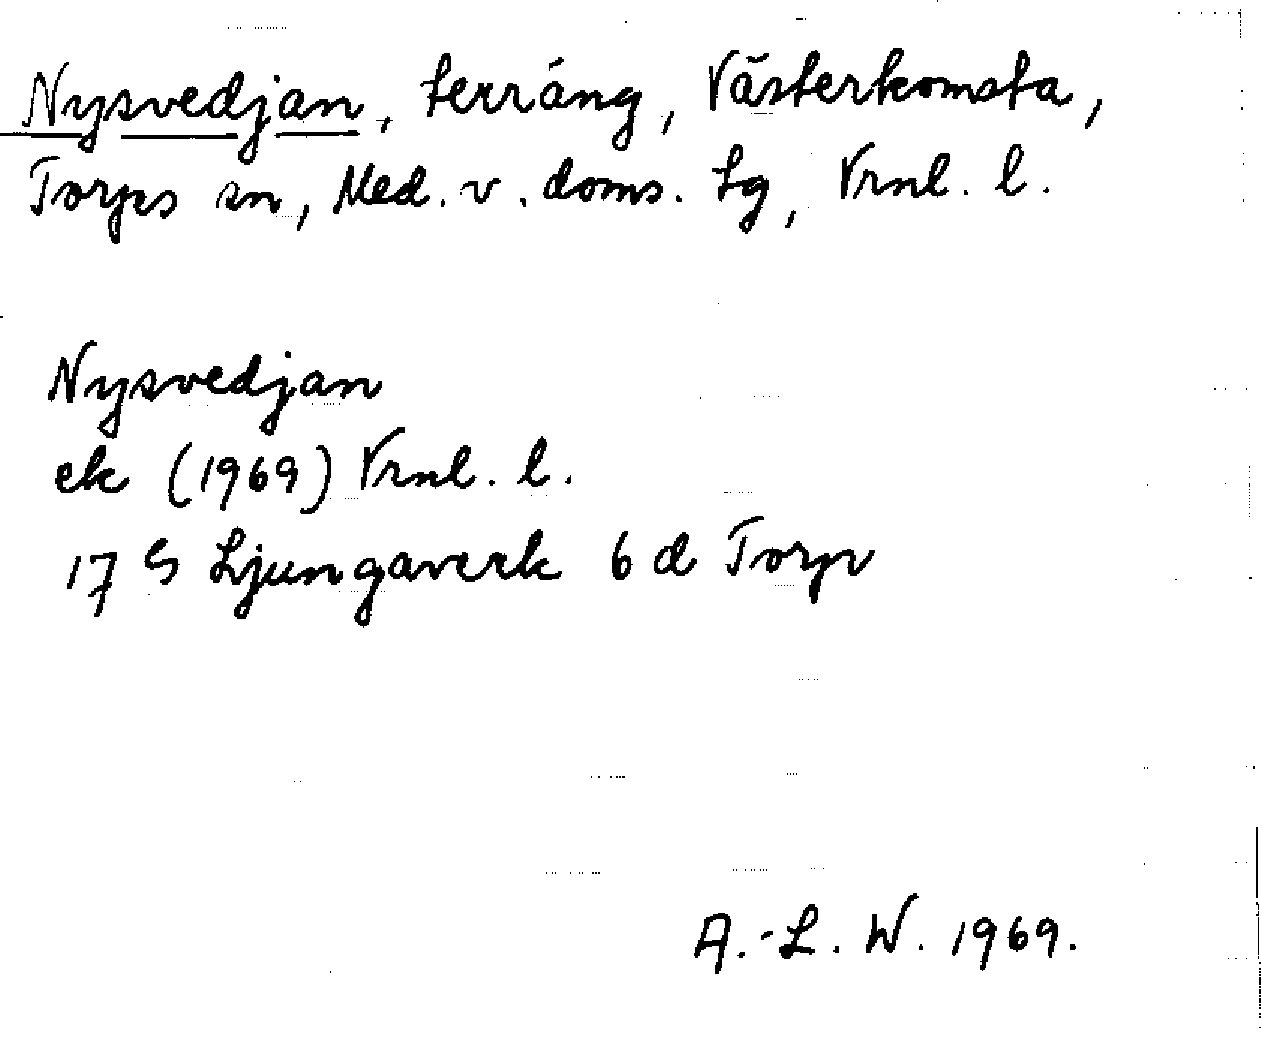 Nysvedjan, terräng, Västerkomsta,
Torps sn, Med. v. doms. lg, Vrnl. l.
Nysvedjan
ek (1969) Vrnl. l.
17 G Ljungaverk 6 d Torp
A.-L. W. 1969.